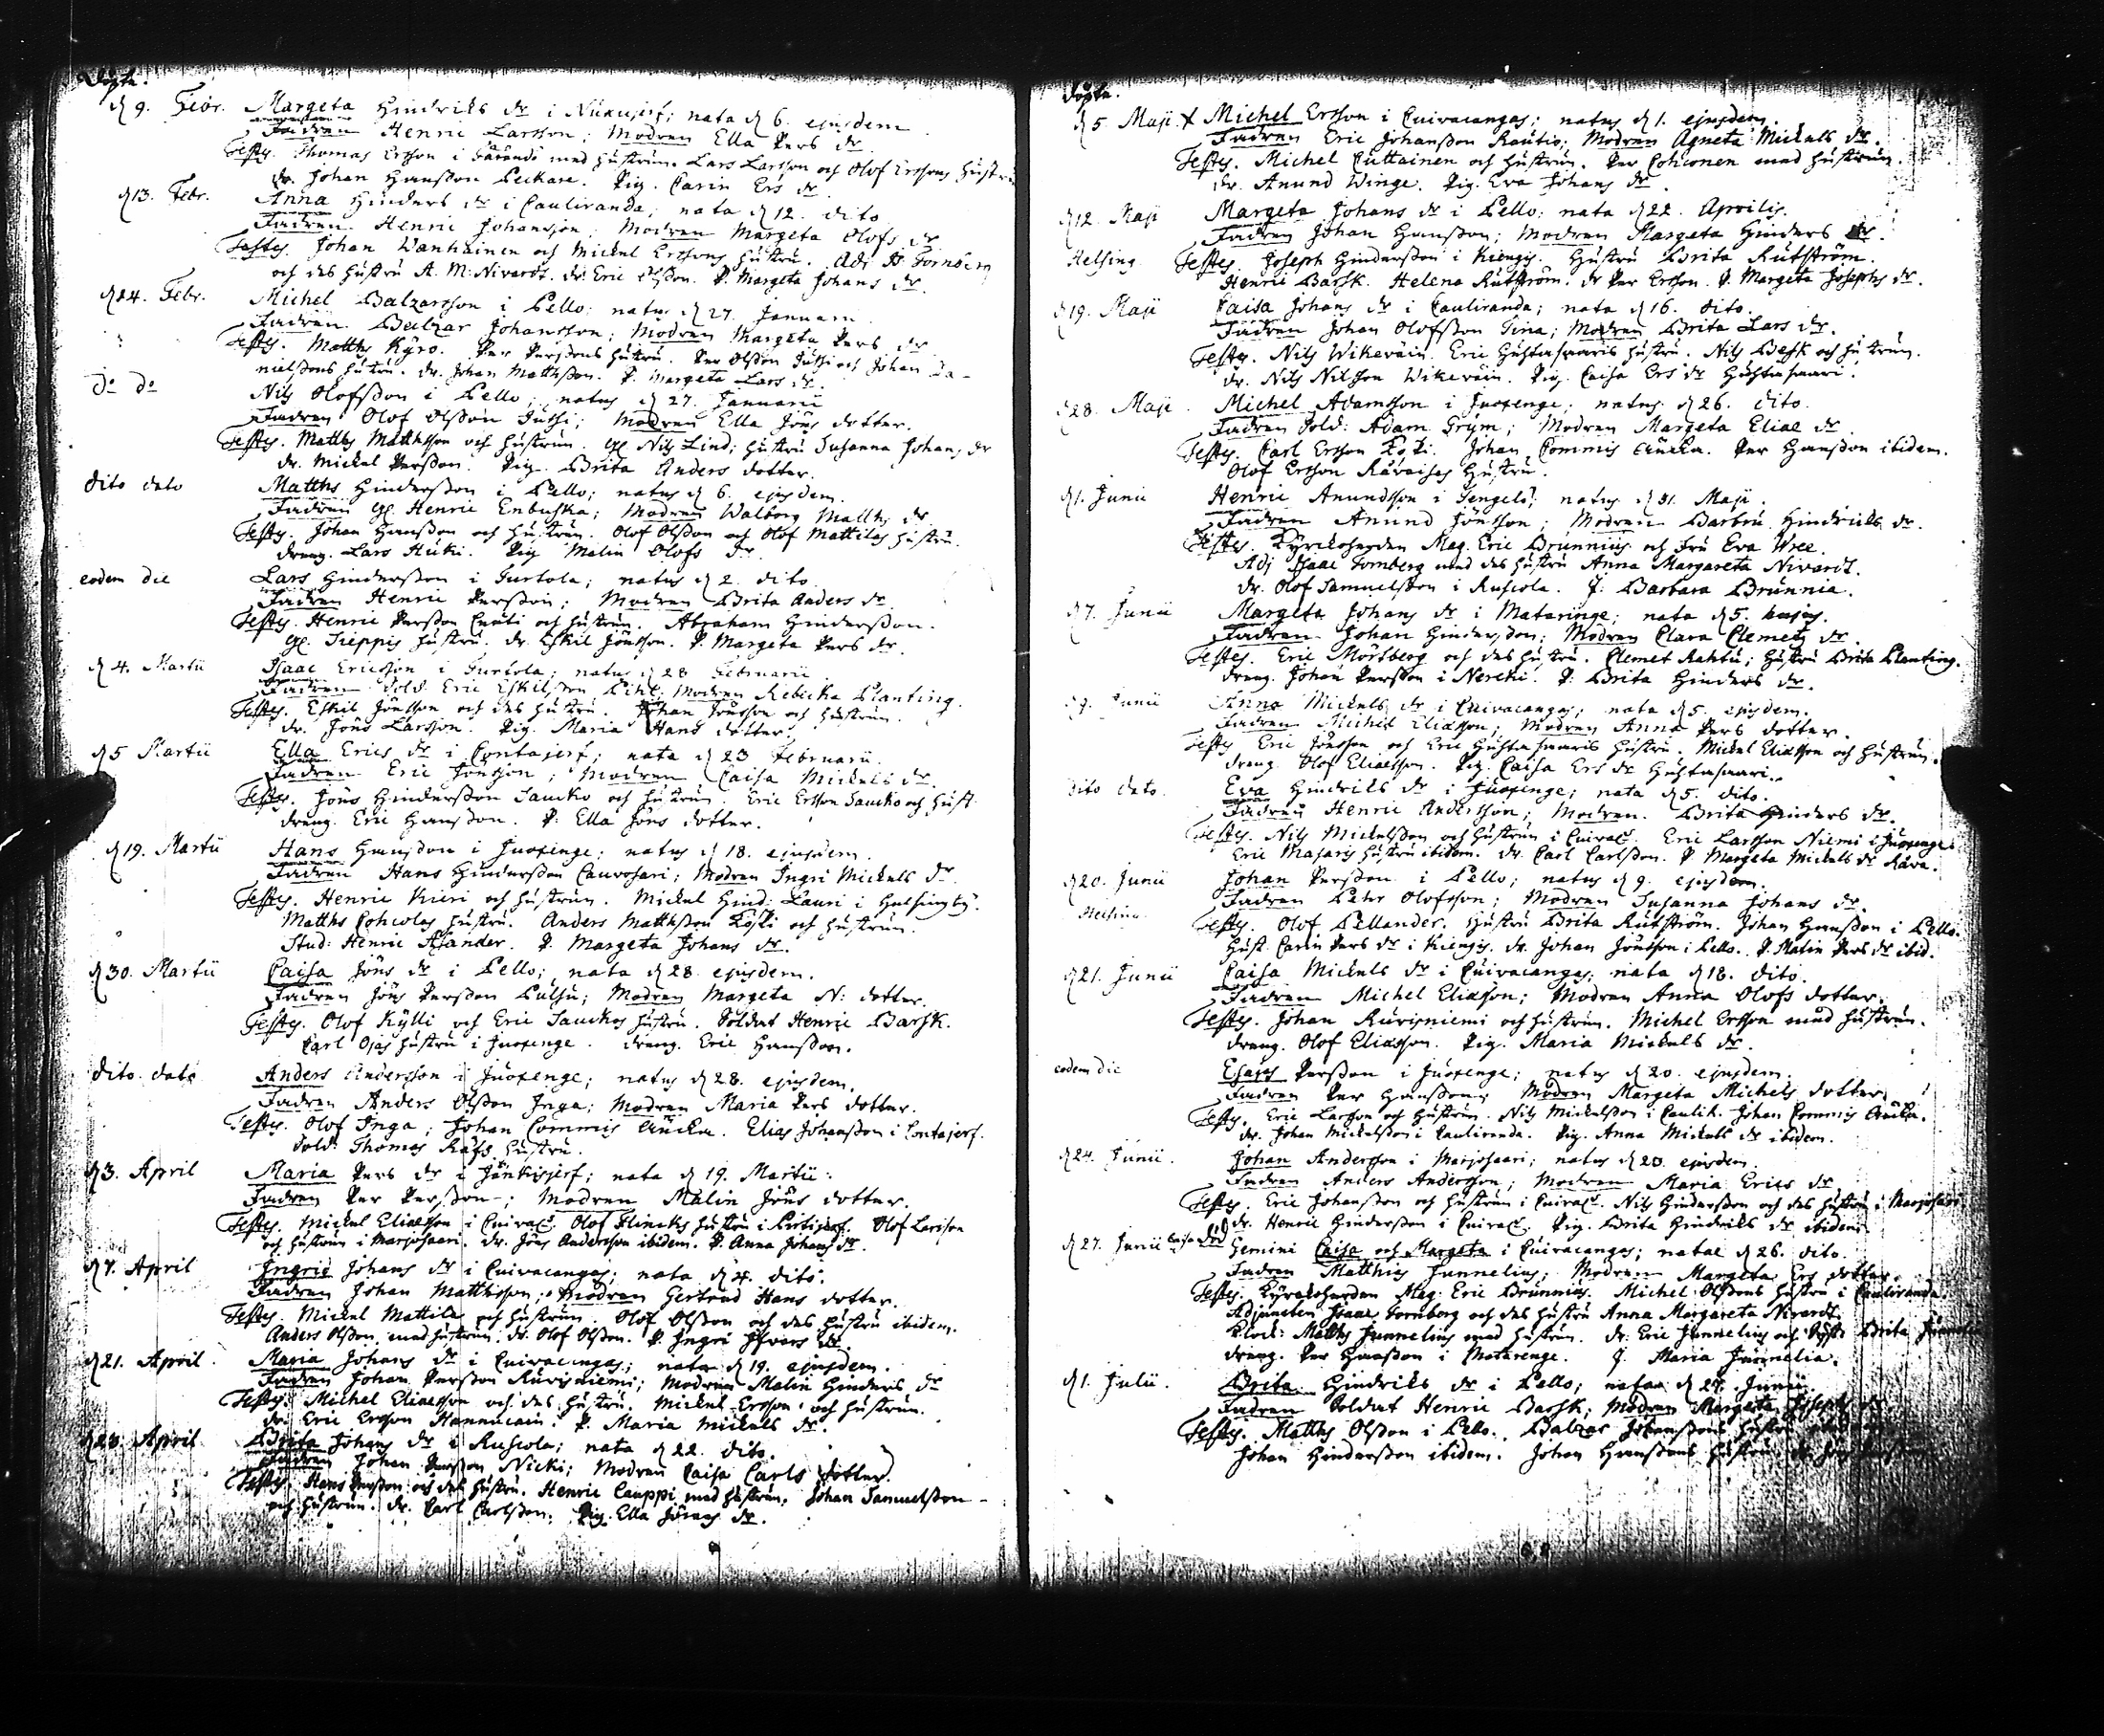 Döpte.
d 9. Febr. Margeta Hindriks dr i ; nata d 6. ejusdem
Fadren Henric Larsson; Modren Ella Pers dr
Testes. Thomas Ersson i med hustrun. Lars Larsson och Olof Erssons hustru
dr. Johan Hansson Leckare. Pig. Carin Ers dr
d 13. Febr. Anna Hinders dr i Cauliranda; nata d 12. dito
Fadren Henric Johansson; Modren Margeta Olofs dr
Testes. Johan Wanhainen och Mickel Erssons hustru. Adj. Is. Tornberg
och des hustru A. M. Nivardt. dr. Eric Olsson. P. Margeta Johans dr.
d 24. Febr. Michel Balzarsson i Pello; natus d 27. Januarii
Fadren Balzar Johansson; Modren Margeta Pers dr
Testes. Matths Kyrö. Per Perssons hustru. Per Olsson Juthi och Johan Da-
nielssons hustru. dr. Johan Matthsson. P. Margeta Lars dr.
do do Nils Olofsson i Pello; natus d 27. Januarii
Fadren Olof Olsson Juthi; Modren Ella Jöns dotter.
Testes. Matths Matthsson och hustrun. gl. Nils Lind; hustru Susanna Johans dr
dr. Mickel Persson. Pig. Brita Anders dotter.
dito dato Matths Hindersson i Pello; natus d 6. ejusdem.
Fadren gl. Henric Enbuska; Modren Walborg Matths dr
Testes. Johan Hansson och hustrun. Olof Olsson och Olof Mattilas hustru.
dreng. Lars Huki. Pig Malin Olofs dr
eodem die Lars Hindersson i Turtola; natus d 2. dito
Fadren Henric Persson; Modren Brita Anders dr
Testes. Henric Persson och hustrun. Abraham Hindersson.
gl. Sieppis hustru. dr. Eskil Jönsson. P. Margeta Pers dr.
d 4. Martii Isaac Ericsson i Turtola; natus d 28 Februarii
Fadren Sold. Eric Eskilsson; Modren Rebecka Planting.
Testes. Eskil Jönsson och des hustru. Johan Jönsson och hustrun.
dr. Jöns Larsson. Pig. Maria Hans dotter.
d 5 Martii Ella Erics dr i Lontajerf; nata d 23 Februarii.
Fadren Eric Jönsson; Modren Caisa Mickels dr.
Testes. Jöns Hindersson Saucko och hustrun. Eric Ersson Saucko och hust.
dreng. Eric Hansson. P. Ella Jöns dotter.
d 19. Martii Hans Hansson i Juoxenge; natus d 18. ejusdem.
Fadren Hans Hindersson Cauvosari; Modren Ingri Mickels dr
Testes. Henric Kieri och hustrun. Mickel Hind: Lauri i Helsingby.
Matths Cohcolas hustru. Anders Matthsson Koski och hustrun.
Stud: Henric Asander. P. Margeta Johans dr.
d 30. Martii Caisa Jöns dr i Pello; nata d 28. ejusdem.
Fadren Jöns Persson; Modren Margeta N: dotter.
Testes. Olof Kylli och Eric Sauckos hustru. Soldat Henric Barsk.
Carl Ojas hustru i Juoxenge. dreng. Eric Hansson.
dito dato Anders Andersson i Juoxenge; natus d 28. ejusdem.
Fadren Anders Olsson Inga; Modren Maria Pers dotter.
Testes. Olof Inga; Johan Commis. Elias Johansson i Lontajerf.
Sold: Thomas Räfs hustru.
d 3. April Maria Pers dr i Jänkisjerf; nata d 19. Martii.
Fadren Per Persson; Modren Malin Jöns dotter.
Testes. Mickel Eliasson i Cuivac. Olof Flincks hustru i. Olof Larsson
och hustrun i Marjosaari. dr. Jöns Andersson ibidem. P. Anna Johans dr.
d 7. April Ingrid Johans dr i Cuivacangas; nata d 4. dito.
Fadren Johan Matthsson; Modren Gertrud Hans dotter.
Testes. Mickel Mattila och hustrun. Olof Olsson och des hustru ibidem.
Anders Olsson med hustrun; dr. Olof Olsson. P. Ingri dr
d 21. April. Maria Johans dr i Cuivacangas; nata d 19. ejusdem.
Fadren Johan Persson Ruvisniemi; Modren Malin Hinders dr
Testes. Michel Eliasson och des hustru. Mickel Ersson och hustrun.
dr. Eric Ersson Hannucain. P. Maria Mickels dr.
d 23. April Brita Johans dr i Ruskola; nata d 22. dito.
Fadren Johan Persson Nicki; Modren Caisa Carls dotter.
Testes. Hans Persson och des hustru. Henric Lauppi med hustrun. Johan Samuelsson
och hustrun. dr. Carl Carlsson. Pig. Ella Jönses dr.
Döpte.
d 5. Maji Michel Ersson i Cuivacangas; natus d 1. ejusdem.
Fadren Eric Johansson Rautio; Modren Agneta Mickels dr.
Testes. Michel Cuttainen och hustrun. Per med hustrun.
dr. Anund Winge. Pig. Eva Johans dr.
d 12. Maji Margeta Johans dr i Pello; nata d 22. Aprilis.
Fadren Johan Hansson; Modren Margeta Hinders dr.
Helsing. Testes. Joseph Hindersson i Kiengis. Hustru Brita Rutström.
Henric Barsk. Helena Rutström. dr Per Ersson. P. Margeta Josephs dr.
d 19. Maji Caisa Johans dr i Cauliranda; nata d 16. dito.
Fadren Johan Olofsson; Modren Brita Lars dr.
Testes. Nils Wikeväin. Eric Huhtasaaris hustru. Nils Besk och hustrun.
dr. Nils Nilsson Wikeväin. Pig. Caisa Ers dr Huhtasaari.
d 28. Maji. Michel Adamsson i Juoxenge; natus d 26. dito.
Fadren Sold: Adam Grym; Modren Margeta Eliae dr
Testes. Carl Ersson Koski. Johan Commis. Per Hansson ibidem.
Olof Ersson hustru.
d 1. Junii Henric Anundsson i Tengeli; natus d 31. Maji.
Fadren Anund Jönsson; Modren Barbru Hindriks dr.
Testes. Kyrckoherden Mag. Eric Brunnius och Fru Eva Wree.
Adj Isaac Tornberg med des hustru Anna Margareta Nivardt.
dr. Olof Samuelsson i Ruskola. J. Barbara Brunnia.
d 7. Junii Margeta Johans dr i Mataringe; nata d 5. hujus.
Fadren Johan Hindersson; Modren Clara Clemets dr.
Testes. Eric Mörtberg och des hustru. Clemet Rahtu; hustru Brita Planting.
dreng. Johan Persson i Nercki. P. Brita Hinders dr.
d 9. Junii Anna Mickels dr i Cuivacangas; nata d 5. ejusdem.
Fadren Michel Eliasson; Modren Anna Pers dotter.
Testes Eric Jönsson och Eric Huhtasaaris hustru. Mickel Eliasson och hustrun.
dreng Olof Eliaesson. Pig. Caisa Ers dr Huhtasaari.
dito dato. Eva Hindriks dr i Juoxenge; nata d 5. dito.
Fadren Henric Andersson; Modren. Brita Hinders dr.
Testes. Nils Mickelsson och hustrun i Cuivac. Eric Larsson Niemi i Juoxenge.
Eric Majaris hustru ibidem. dr. Carl Carlsson. P. Margeta Mickels dr.
d 20. Junii Johan Persson i Pello; natus d 9. ejusdem.
Fadren Pehr Olofsson; Modren Susanna Johans dr.
Helsing. Testes. Olof Pellander. Hustru Brita Rutström. Johan Hansson i Pello.
Hust. Carin Pers dr i Kiengis. dr. Johan Jönsson i Pello. P. Malin Pers dr ibid.
d 21. Junii Caisa Mickels dr i Cuivacangas; nata d 18. dito.
Fadren Michel Eliasson; Modren Anna Olofs dotter.
Testes. Johan Ruvisniemi och hustrun. Michel Ersson med hustrun.
dreng. Olof Eliasson. Pig. Maria Mickels dr.
eodem die Esajas Persson i Juoxenge; natus d 20. ejusdem.
Fadren Per Hansson; Modren Margeta Michels dotter.
Testes. Eric Larsson och hustrun. Nils Mickelsson i Caulir. Johan Commis.
dr. Johan Mickelsson i Cauliranda. Pig. Anna Mickels dr ibidem.
d 24. Junii. Johan Andersson i Marjosaari; natus d 20. ejusdem.
Fadren Anders Andersson; Modren Maria Erics dr
Testes. Eric Johansson och hustrun i Cuivac. Nils Hindersson och des hustru i Marjosaari
dr. Henric Hindersson i Cuivac. Pig. Brita Hindriks dr ibidem
d 27. Junii Gemini Caisa och Margeta i Cuivacangas; natae d 26. dito.
Fadren Matthias Junnelius; Modren Margeta Ers dotter.
Testes. Kyrckoherden Mag. Eric Brunnius. Michel Olssons hustru i Cauliranda.
Adjuncten Isaac Tornberg och des hustru Anna Margareta Nivardt.
Klock: Matths Junnelius med hustrun. dr. Eric Junnelius och Brita
dreng. Per Hansson i Matarenge. J. Maria Junnelia.
d 1. Julii. Brita Hindriks dr i Pello; nata d 27. Junii.
Fadren Soldat Henric Barsk; Modren Margeta Josephs dr
Testes. Matths Olsson i Pello. Balzar Johanssons hustru
Johan Hindersson ibidem. Johan Hanssons hustru